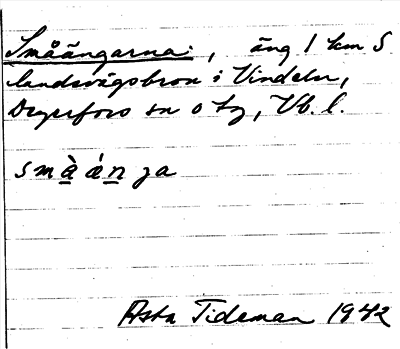 Småängarna, äng 1 km S
landsvägsbron i Vindeln,
Degerfors sn o tg, Vb. l.
småǹ̲ga
Asta Tideman 1942